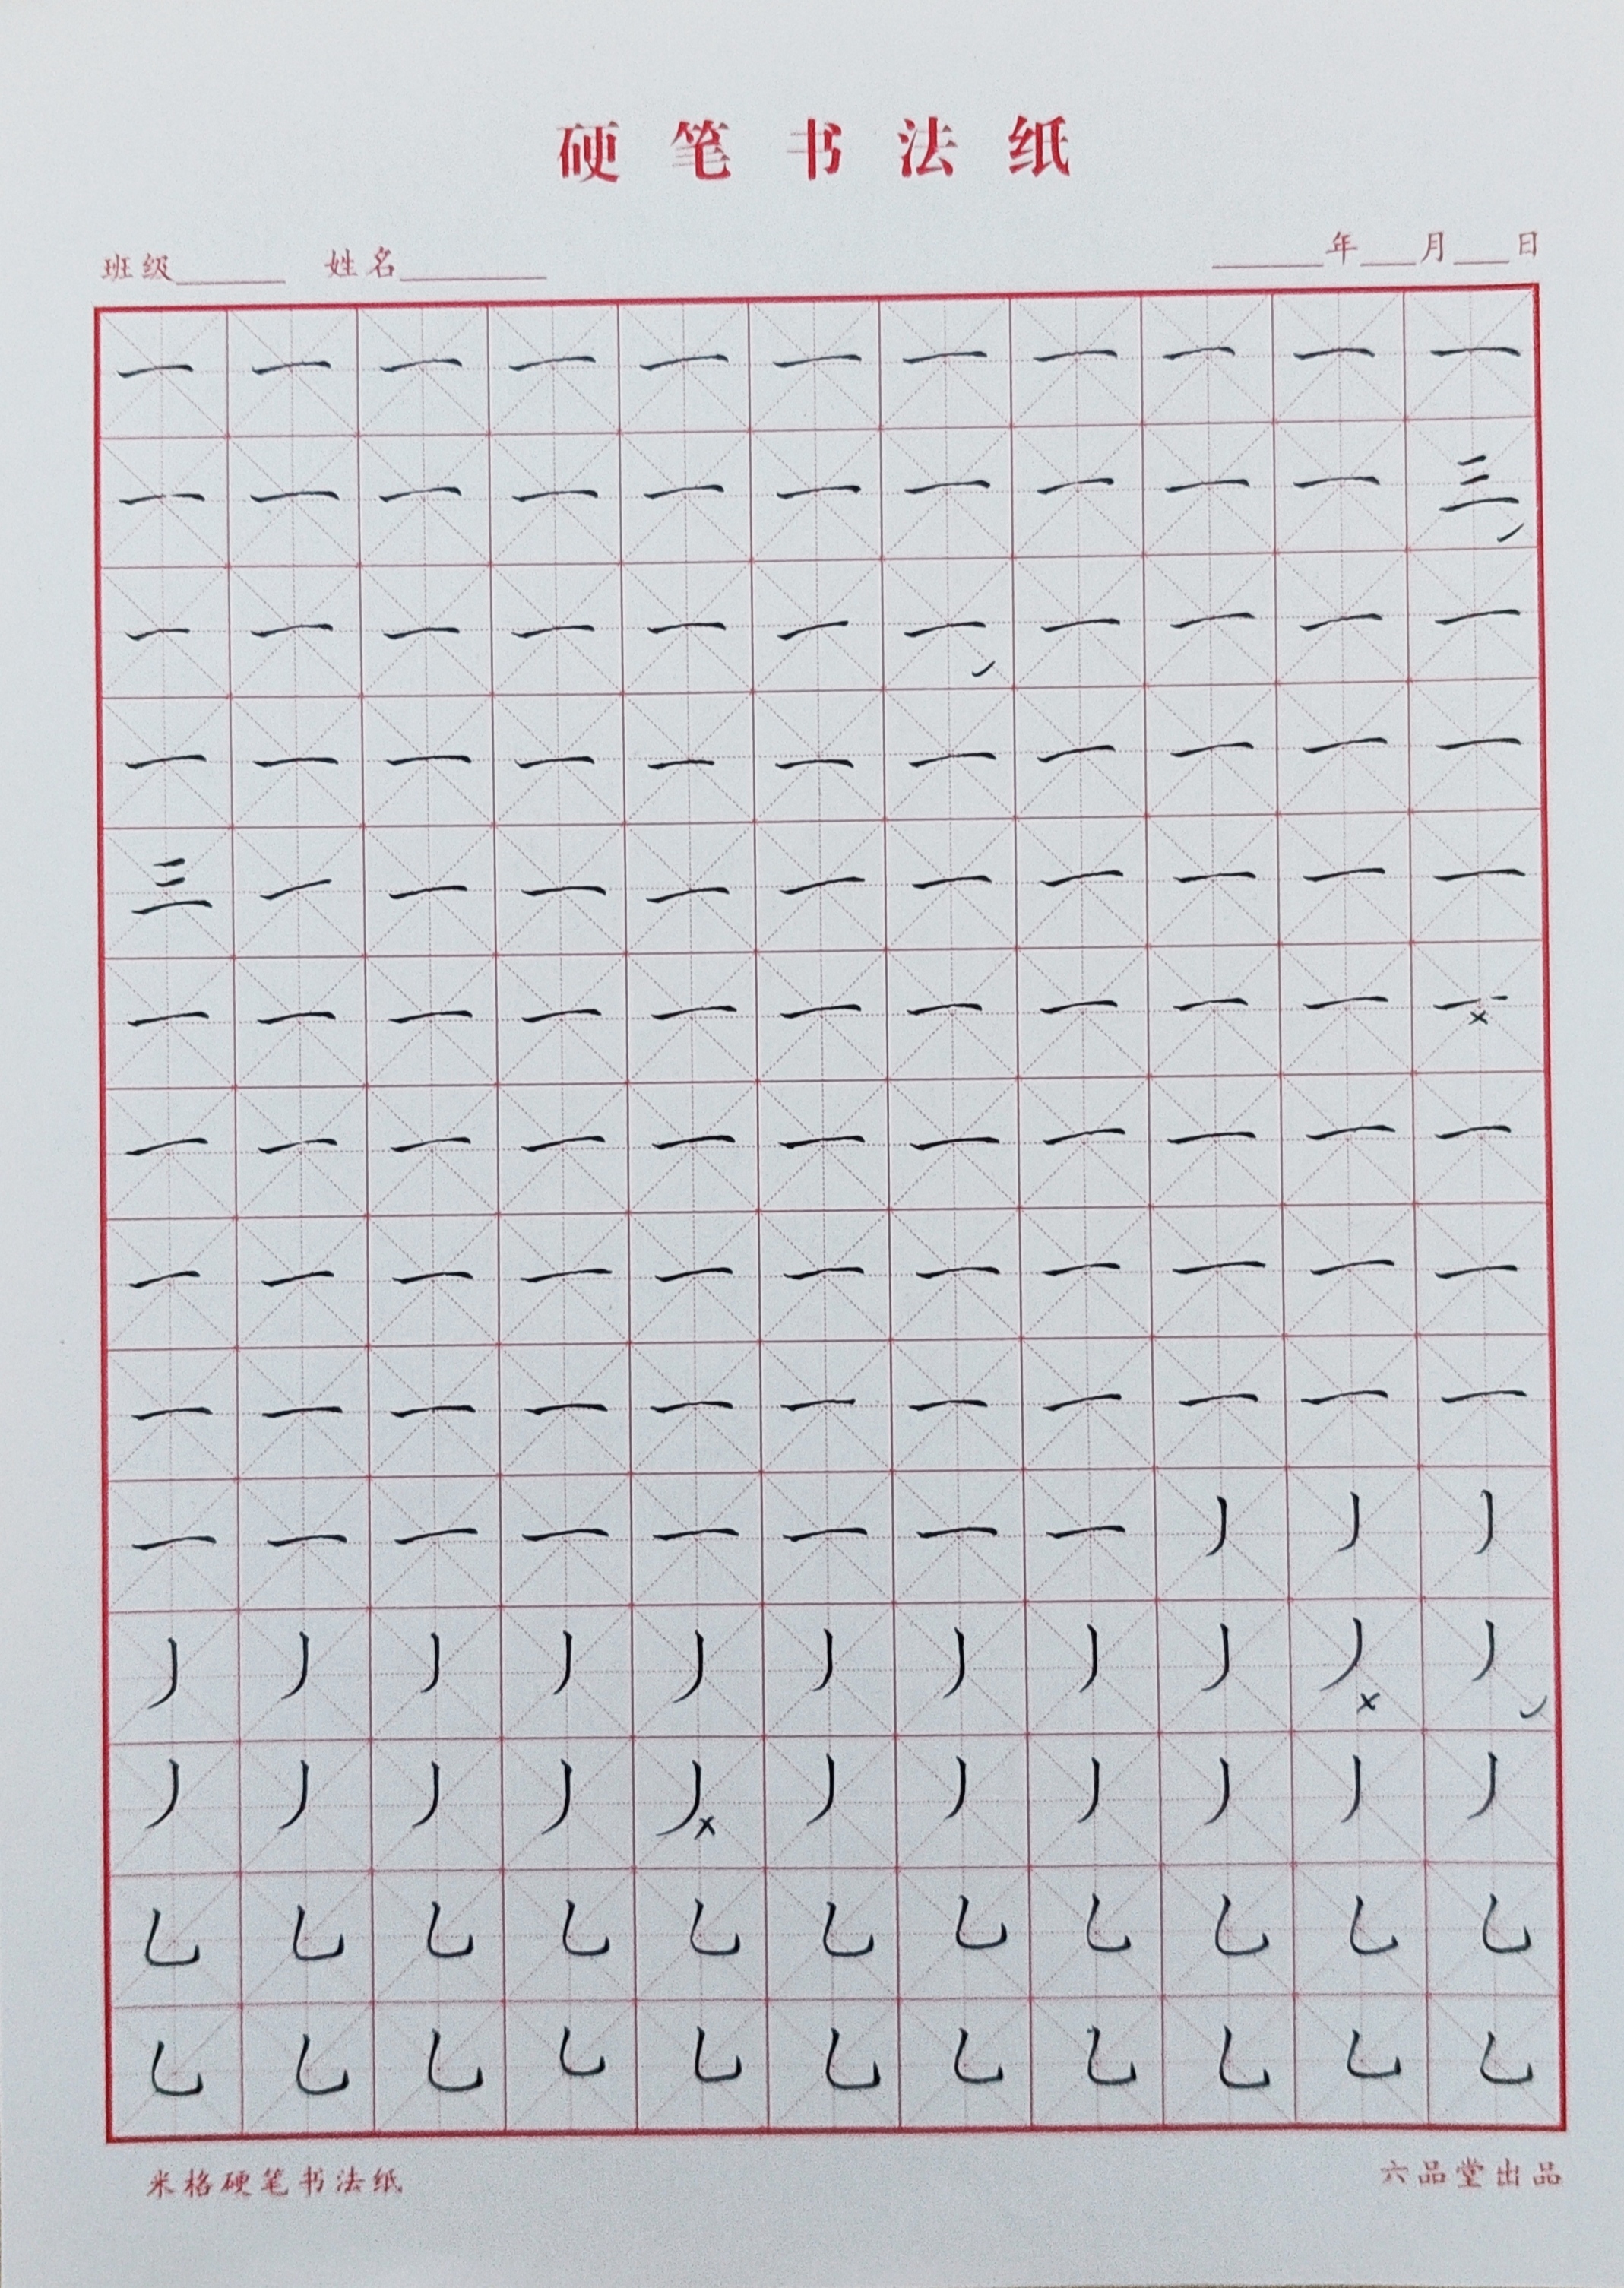 硬笔书法纸
班级______ 姓名________ ______年___月___日
一 一 一 一 一 一 一 一 一 一 一
一 一 一 一 一 一 一 一 一 一 三
一 一 一 一 一 一 一 一 一 一 一
一 一 一 一 一 一 一 一 一 一 一
三 一 一 一 一 一 一 一 一 一 一
一 一 一 一 一 一 一 一 一 一 一 ×
一 一 一 一 一 一 一 一 一 一 一
一 一 一 一 一 一 一 一 一 一 一
一 一 一 一 一 一 一 一 一 一 一
一 一 一 一 一 一 一 一 丿 丿 丿
丿 丿 丿 丿 丿 丿 丿 丿 丿 丿 × 丿
丿 丿 丿 丿 丿 × 丿 丿 丿 丿 丿 丿
乚 乚 乚 乚 乚 乚 乚 乚 乚 乚 乚
乚 乚 乚 乚 乚 乚 乚 乚 乚 乚 乚
米格硬笔书法纸 六品堂出品